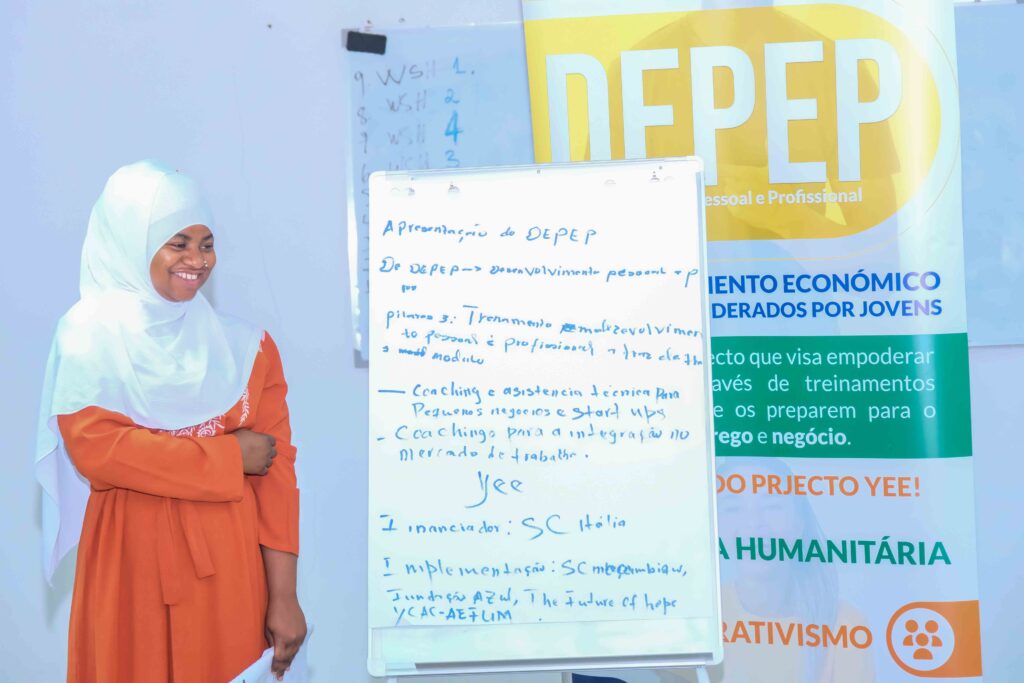 9 WSH 1.
8 WSH 2
7 WSH 4
6 WSH 3
DEPEP
essoal e Profissional
IENTO ECONÓMICO
DERADOS POR JOVENS
ecto que visa empoderar
avés de treinamentos
e os preparem para o
rego e negócio.
DO PRJECTO YEE!
A HUMANITÁRIA
RATIVISMO
Apresentação do DEPEP
De DEPEP → Desenvolvimento pessoal e P
pilares 3: Trenamento
to pessoal e profissional
modulo
— Coaching e asistencia técnica para
Pequenos negocios e start ups
- Coachings para a integração no
mercado de trabalho.
Yee
Financiador: SC Itália
Implementação: SC moçambique,
Fundação Azul, The Future of hope
YCAC-AEFUM.